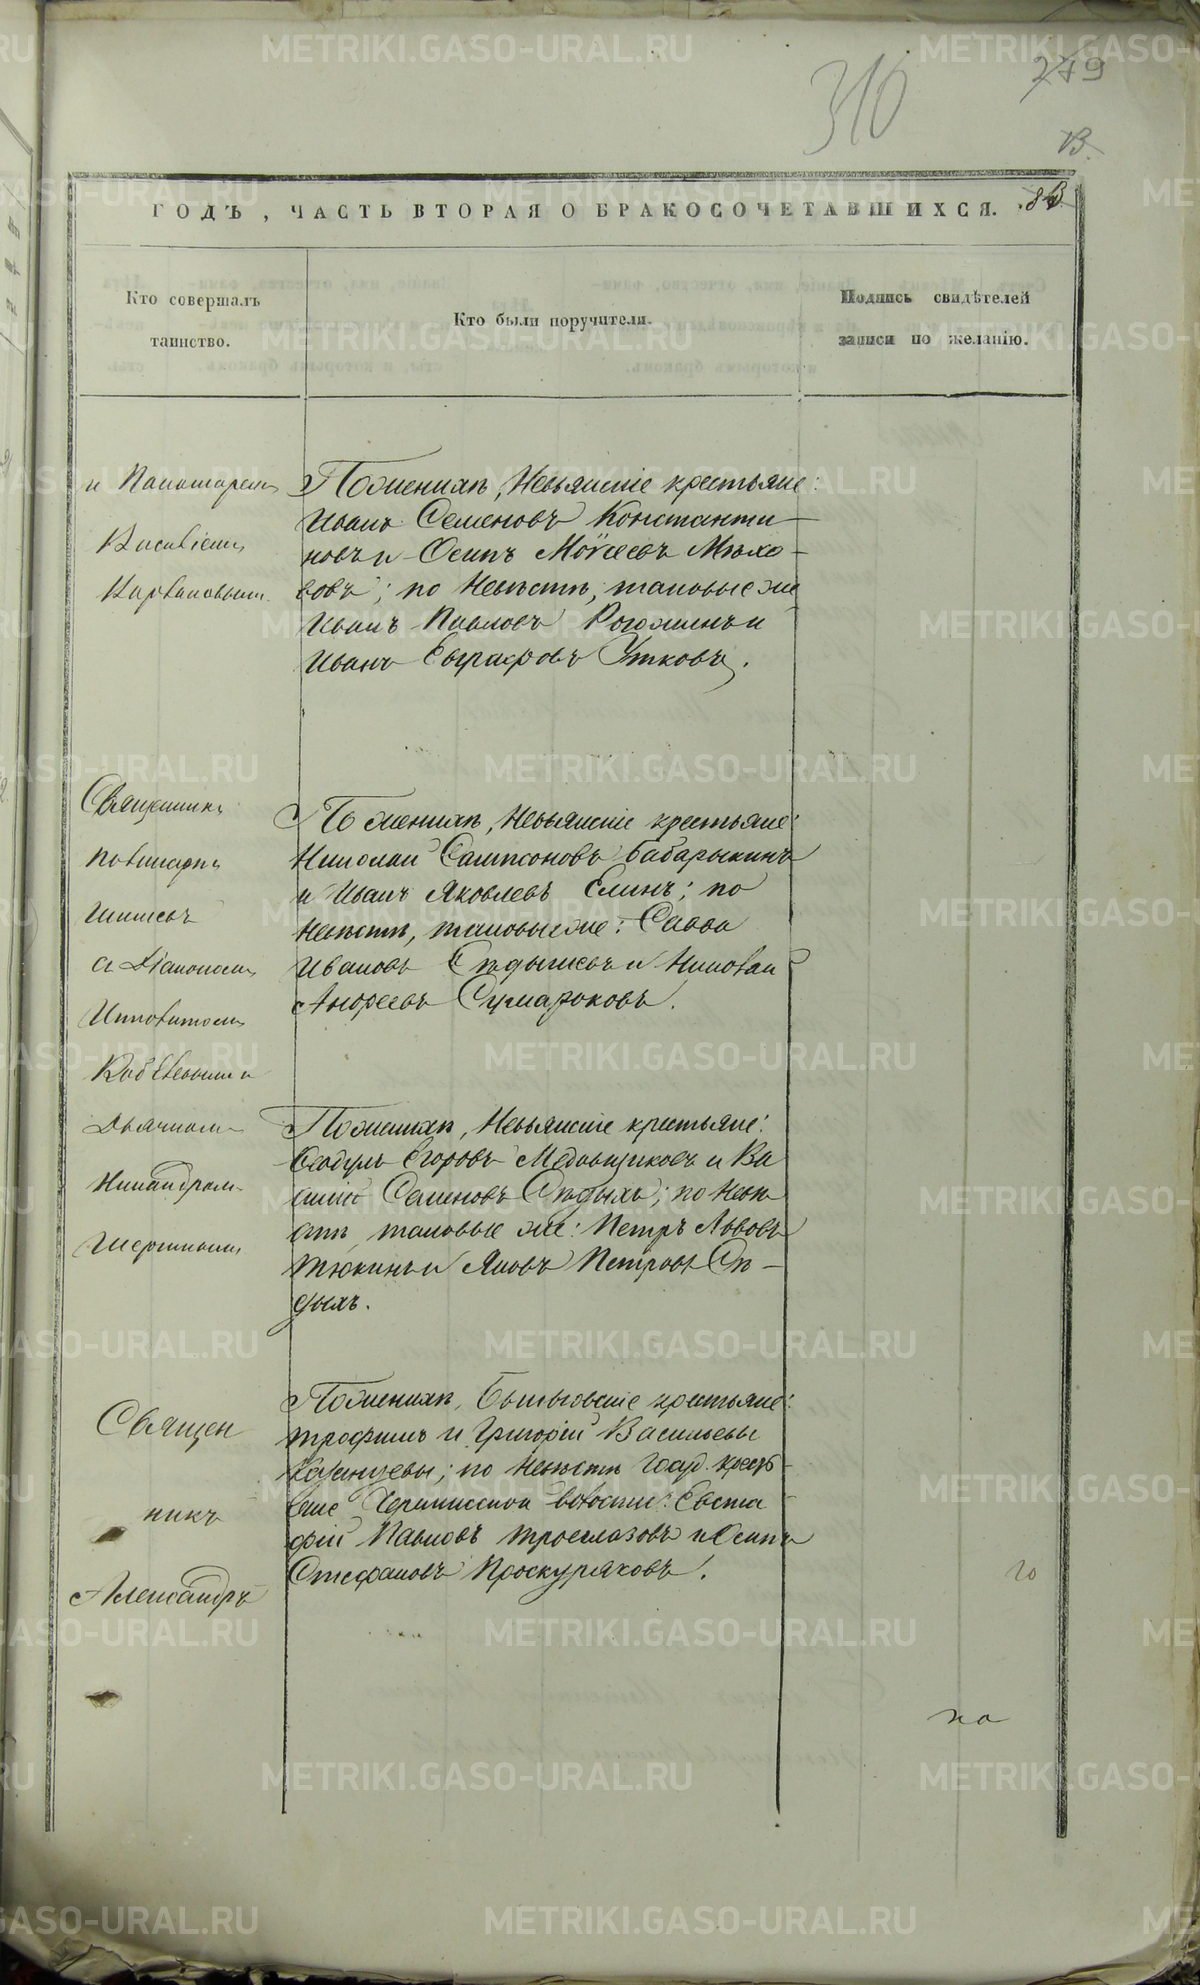 310
279
В.
83
ГОДЪ, ЧАСТЬ ВТОРАЯ О БРАКОСОЧЕТАВШИХСЯ.
Кто совершалъ
таинство.
Кто были поручители.
Подпись свидѣтелей
записи по желанію.
и Пономаремъ
Василіемъ
По женихѣ, Невьянскіе крестьяне:
Иванъ Семеновъ Константи-
новъ и Осипъ Моѵсеевъ Мѣхо-
вовъ; по Невѣстѣ, таковые же
Иванъ Павловъ Рогожинъ и
Иванъ Евграфовъ Утковъ.
Священникъ
Шишевъ
съ Діакономъ
Ипполитомъ
Дьячкомъ
Никандромъ
По женихѣ, Невьянскіе крестьяне:
Николай Сампсоновъ Бабарыкинъ
и Иванъ Яковлевъ Елинъ; по
Невѣстѣ, таковые же: Савва
Ивановъ и Николай
Андреевъ Сумароковъ.
По женихѣ, Невьянскіе крестьяне:
Ѳеодулъ Егоровъ Мѣдовщиковъ и Ва
силій Семеновъ Сѣдыхъ; по Невѣ
стѣ, таковые же: Петръ Львовъ
Тюкинъ и Яковъ Петровъ Сѣ-
дыхъ.
Священ
никъ
Александръ
По женихѣ, Быньговскіе крестьяне:
Трофимъ и Григорій Васильевы
Казанцевы; по Невѣстѣ Госуд. крестьяне
волости: Евста
фій Павловъ Троеглазовъ и Осипъ
Стефановъ Проскуряковъ.
го
на
METRIKI.GASO-URAL.RU